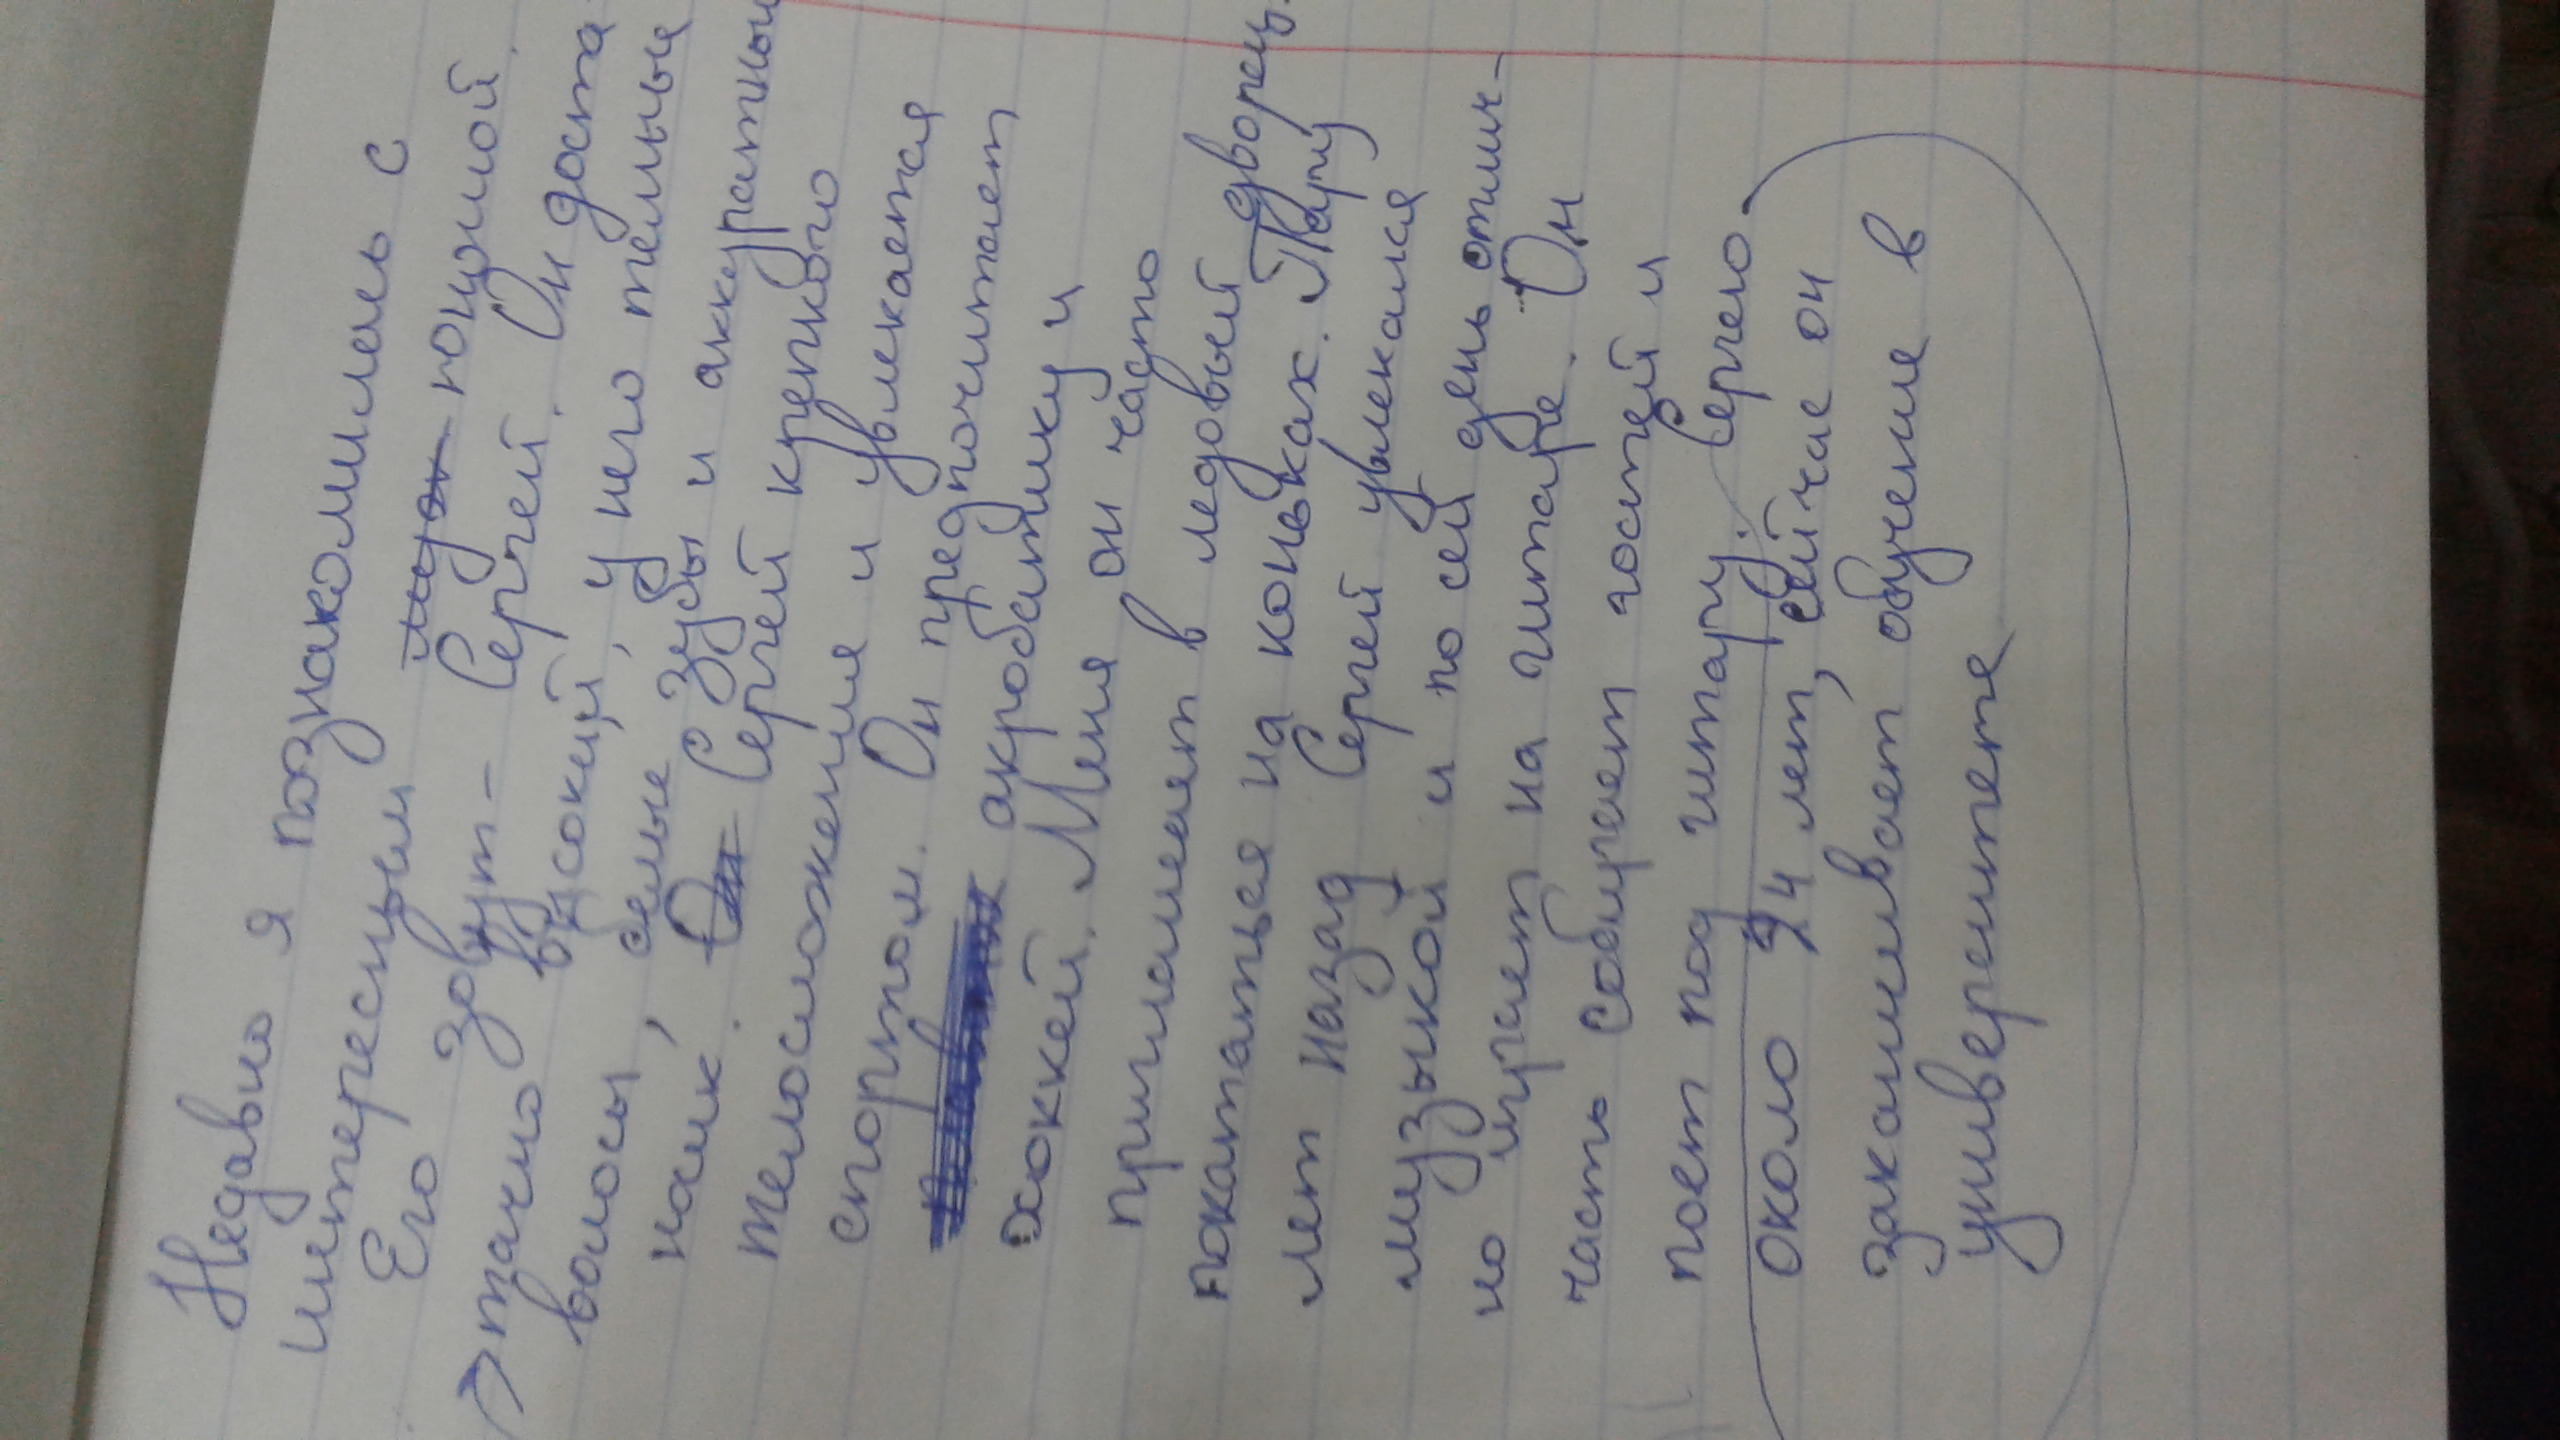 Недавно я познакомилась с
интересным юношой.
Его зовут - Сергей. Он доста
точно высокий, у него тёмные
волосы, белые зубы и аккуратный
нос. Сергей крепкого
телосложения и увлекается
спортом. Он предпочитает
акробатику и
хоккей. Меня он часто
приглашает в ледовый дворец.
покататься на коньках. Пару
лет назад Сергей увлекался
музыкой и по сей день отлич-
но играет на гитаре. Он
часть собирает гостей и
поет под гитару. Сергею
около 24 лет, сейчас он
заканчивает обучение в
университете